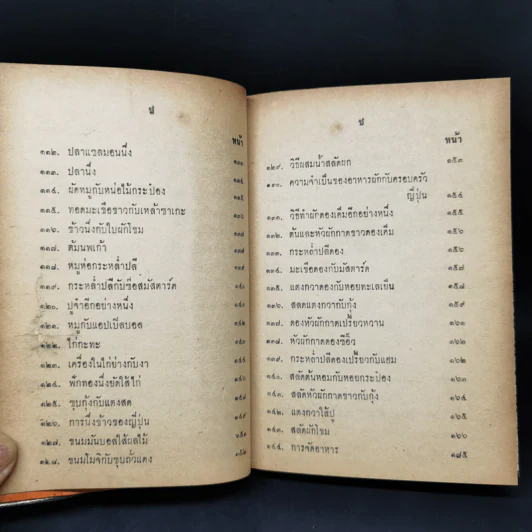 ป
หน้า
๑๑๒. ปลาแซลมอนนึ่ง
๑๑๓. ปลานึ่ง
๑๑๔. ผัดหมูกับหน่อไม้กระป๋อง
๑๑๕. ทอดมะเขือขาวกับเหล้าซาเกะ
๑๑๖. ข้าวนึ่งกับใบผักโขม
๑๑๗. ต้มนพเก้า
๑๑๘. หมูห่อกระหล่ำปลี
๑๑๙. กระหล่ำปลีกับซ๊อสมัสตาร์ด
๑๒๐. ปูจ๋าอีกอย่างหนึ่ง
๑๒๑. หมูกับแอปเปิลบอล
๑๒๒. ไก่กะทะ
๑๒๓. เครื่องในไก่ย่างกับงา
๑๒๔. ฟักทองนึ่งยัดไส้ไก่
๑๒๕. ซุบกุ้งกับแตงสด
๑๒๖. การนึ่งข้าวของญี่ปุ่น
๑๒๗. ขนมมันบอลไส้ผลไม้
๑๒๘. ขนมโมจิกับซุบถั่วแดง ๑๕๒
ป
หน้า
๑๒๙. วิธีผสมน้ำสลัดผัก ๑๕๓
๑๓๐. ความจำเป็นของอาหารผักกับครอบครัว
ญี่ปุ่น ๑๕๔
๑๓๑. วิธีทำผักดองเค็มอีกอย่างหนึ่ง ๑๕๕
๑๓๒. ต้นและหัวผักกาดขาวดองเค็ม ๑๕๖
๑๓๓. กระหล่ำปลีดอง ๑๕๖
๑๓๔. มะเขือดองกับมัสตาร์ด ๑๕๗
๑๓๕. แตงกวาดองกับหอยทะเลเย็น ๑๕๗
๑๓๖. สลัดแตงกวากับกุ้ง ๑๕๙
๑๓๗. ดองหัวผักกาดเปรี้ยวหวาน ๑๖๑
๑๓๘. หัวผักกาดดองซีอิ๊ว ๑๖๑
๑๓๙. กระหล่ำปลีดองเปรี้ยวกับแฮม ๑๖๒
๑๔๐. สลัดต้นหอมกับหอยกระป๋อง ๑๖๓
๑๔๑. สลัดหัวผักกาดขาวกับกุ้ง ๑๖๔
๑๔๒. แตงกวาใส้ปู ๑๖๕
๑๔๓. สลัดผักโขม ๑๖๖
๑๔๔. การจัดอาหาร ๑๗๕